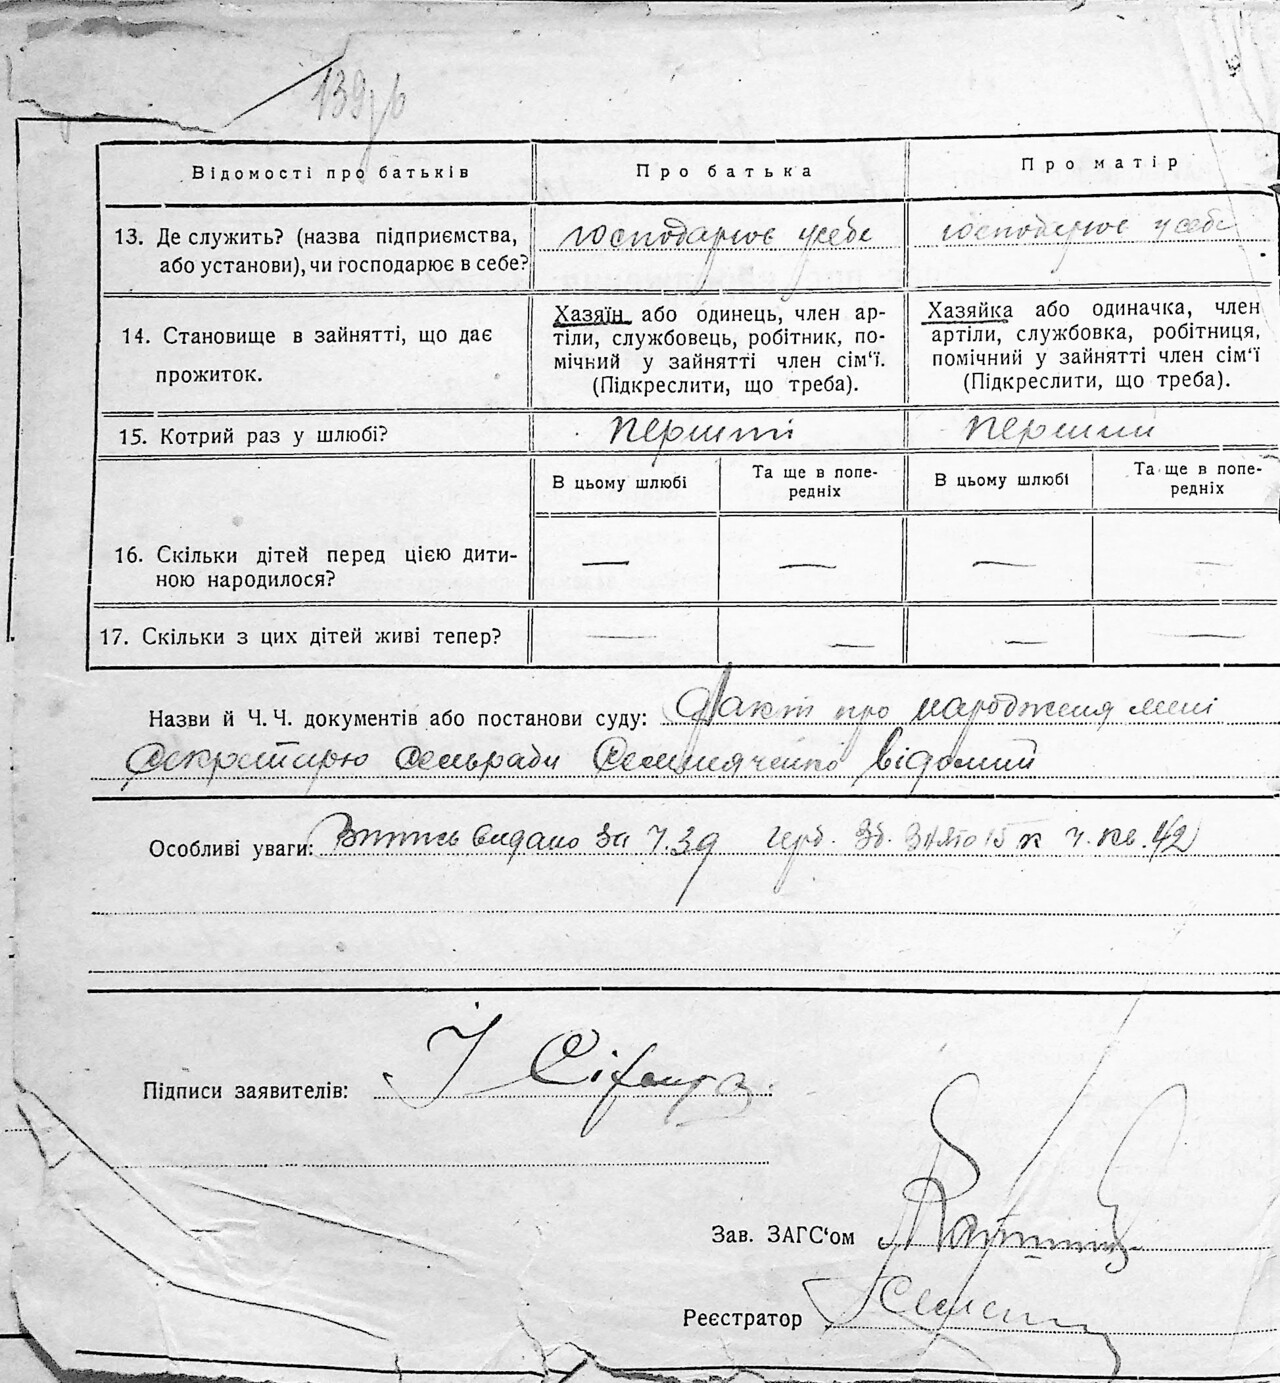 139зв
Відомості про батьків
Про батька
Про матір
13. Де служить? (назва підприємства,
або установи), чи господарює в себе?
господарює у себе
господарює у себе
14. Становище в зайнятті, що дає
прожиток.
Хазяїн або одинець, член ар-
тіли, службовець, робітник, по-
мічний у зайнятті член сім'ї.
(Підкреслити, що треба).
Хазяйка або одиначка, член
артіли, службовка, робітниця,
помічний у зайнятті член сім'ї
(Підкреслити, що треба).
15. Котрий раз у шлюбі?
перший
перший
В цьому шлюбі
Та ще в попе-
редніх
В цьому шлюбі
Та ще в попе-
редніх
16. Скільки дітей перед цією дити-
ною народилося?
— — — —
17. Скільки з цих дітей живі тепер?
— — — —
Назви й Ч. Ч. документів або постанови суду: Факт про народження мені
Секретарю сельради відомий
Особливі уваги: Витись видано за Ч. 39 герб. Зб. знято 15 к
Підписи заявителів:
Зав. ЗАГС'ом
Реєстратор